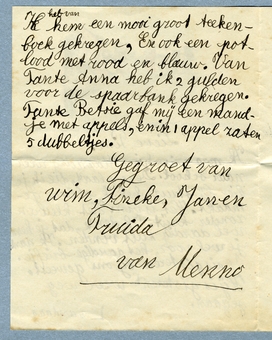 heb van
Ik hem een mooi groot teeken-
boek gekregen, En ook een pot-
lood met rood en blauw. Van
Tante Anna heb ik 2 gulden
voor de spaarbank gekregen.
Tante Betsie gaf mij een mand-
je met appels, en in 1 appel zaten
5 dubbeltjes.
Gegroet van
wim, Fineke, Jawen
Truida
van Menno